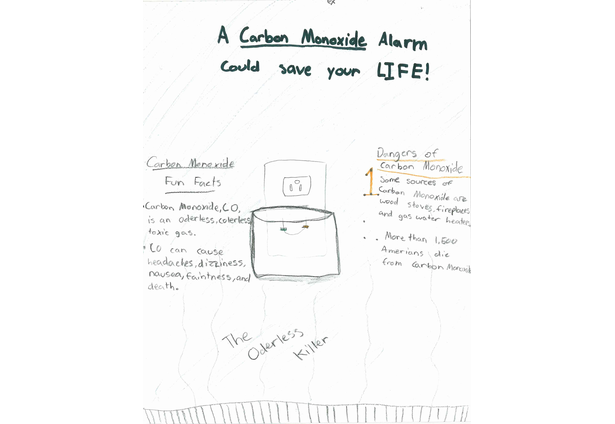 A Carbon Monoxide Alarm
Could save your LIFE!
Carbon Monoxide
Fun Facts
•Carbon Monoxide, CO,
is an oderless, colorless
toxic gas.
• CO can cause
headaches, dizziness,
nausea, faintness, and
death.
Dangers of
Carbon Monoxide
1 Some sources of
Carbon Monoxide are
wood stoves, fireplaces
and gas water heaters
• More than 1,500
Amerians die
from Carbon Monoxid
The
Oderless
Killer